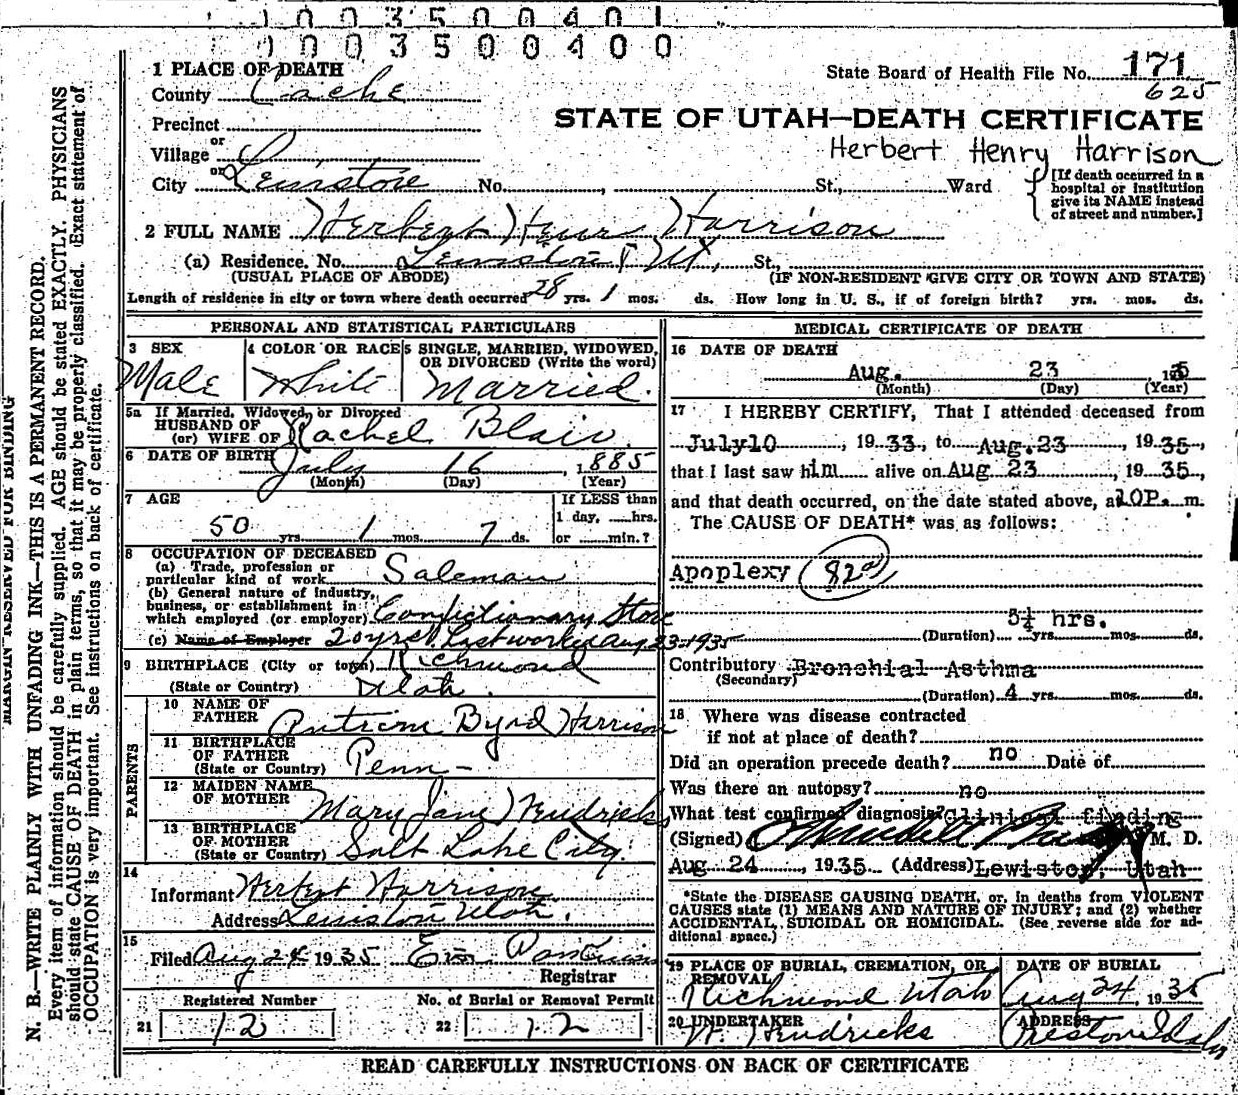 1 0 0 3 5 0 0 4 0 1
0 0 0 3 5 0 0 4 0 0
1 PLACE OF DEATH
State Board of Health File No. 171
625
County Cache
STATE OF UTAH—DEATH CERTIFICATE
Precinct
Herbert Henry Harrison
or
Village
or
City Lewiston No. , St., Ward
[If death occurred in a
hospital or institution
give its NAME instead
of street and number.]
2 FULL NAME Herbert Henry Harrison
(a) Residence. No. Lewiston Ut, St.,
(USUAL PLACE OF ABODE) (IF NON-RESIDENT GIVE CITY OR TOWN AND STATE)
Length of residence in city or town where death occurred 28 yrs. 1 mos. ds. How long in U. S., if of foreign birth? yrs. mos. ds.
PERSONAL AND STATISTICAL PARTICULARS
3 SEX
Male
4 COLOR OR RACE
White
5 SINGLE, MARRIED, WIDOWED,
OR DIVORCED (Write the word)
Married.
5a If Married, Widowed, or Divorced
HUSBAND OF
(or) WIFE OF Rachel Blair.
6 DATE OF BIRTH July 16, 1885
(Month) (Day) (Year)
7 AGE
50 yrs. 1 mos. 7 ds.
If LESS than
1 day, hrs.
or min.?
8 OCCUPATION OF DECEASED
(a) Trade, profession or
particular kind of work Saleman
(b) General nature of industry,
business, or establishment in
which employed (or employer) Confictionary Store
(c) Name of Employer 20 yrs. Last worked aug. 23-1935
9 BIRTHPLACE (City or town) Richmond
(State or Country) Utah.
PARENTS
10 NAME OF
FATHER Putnam Byrd Harrison
11 BIRTHPLACE
OF FATHER
(State or Country) Penn-
12 MAIDEN NAME
OF MOTHER Mary Jane Hendricks
13 BIRTHPLACE
OF MOTHER
(State or Country) Salt Lake City.
14
Informant Herbert Harrison
Address Lewiston Utah.
15
Filed Aug 24 1935
Registrar
Registered Number
21 12
No. of Burial or Removal Permit
22 12
MEDICAL CERTIFICATE OF DEATH
16 DATE OF DEATH
Aug. 23 , 1935
(Month) (Day) (Year)
17 I HEREBY CERTIFY, That I attended deceased from
July10 , 19 33, to Aug.23 , 19 35,
that I last saw him alive on Aug 23 , 19 35,
and that death occurred, on the date stated above, at 10P. m.
The CAUSE OF DEATH* was as follows:
Apoplexy 82a
5½ hrs.
(Duration) yrs. mos. ds.
Contributory Bronchial Asthma
(Secondary)
(Duration) 4 yrs. mos. ds.
18 Where was disease contracted
if not at place of death?
Did an operation precede death? no Date of
Was there an autopsy? no
What test confirmed diagnosis? Clinical finding
(Signed) M. D.
Aug 24 , 1935 (Address) Lewiston, Utah
*State the DISEASE CAUSING DEATH, or, in deaths from VIOLENT
CAUSES state (1) MEANS AND NATURE OF INJURY; and (2) whether
ACCIDENTAL, SUICIDAL OR HOMICIDAL. (See reverse side for ad-
ditional space.)
19 PLACE OF BURIAL, CREMATION, OR
REMOVAL
Richmond Utah
DATE OF BURIAL
Aug 24, 1935
20 UNDERTAKER
W. Hendricks
ADDRESS
Preston Idaho
READ CAREFULLY INSTRUCTIONS ON BACK OF CERTIFICATE
MARGIN RESERVED FOR BINDING
N. B.—WRITE PLAINLY WITH UNFADING INK—THIS IS A PERMANENT RECORD.
Every item of information should be carefully supplied. AGE should be stated EXACTLY. PHYSICIANS
should state CAUSE OF DEATH in plain terms, so that it may be properly classified. Exact statement of
OCCUPATION is very important. See instructions on back of certificate.